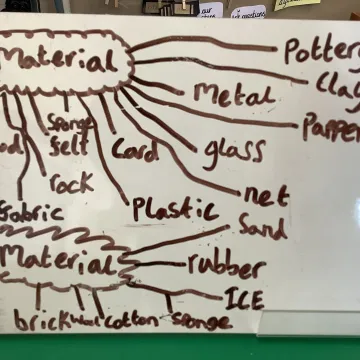 our
Material
Potter
Clay
Metal
Papper
Sponge
felt
Card
glass
rock
net
Plastic
fabric
Sand
Material
rubber
ICE
brick wool cotton sponge